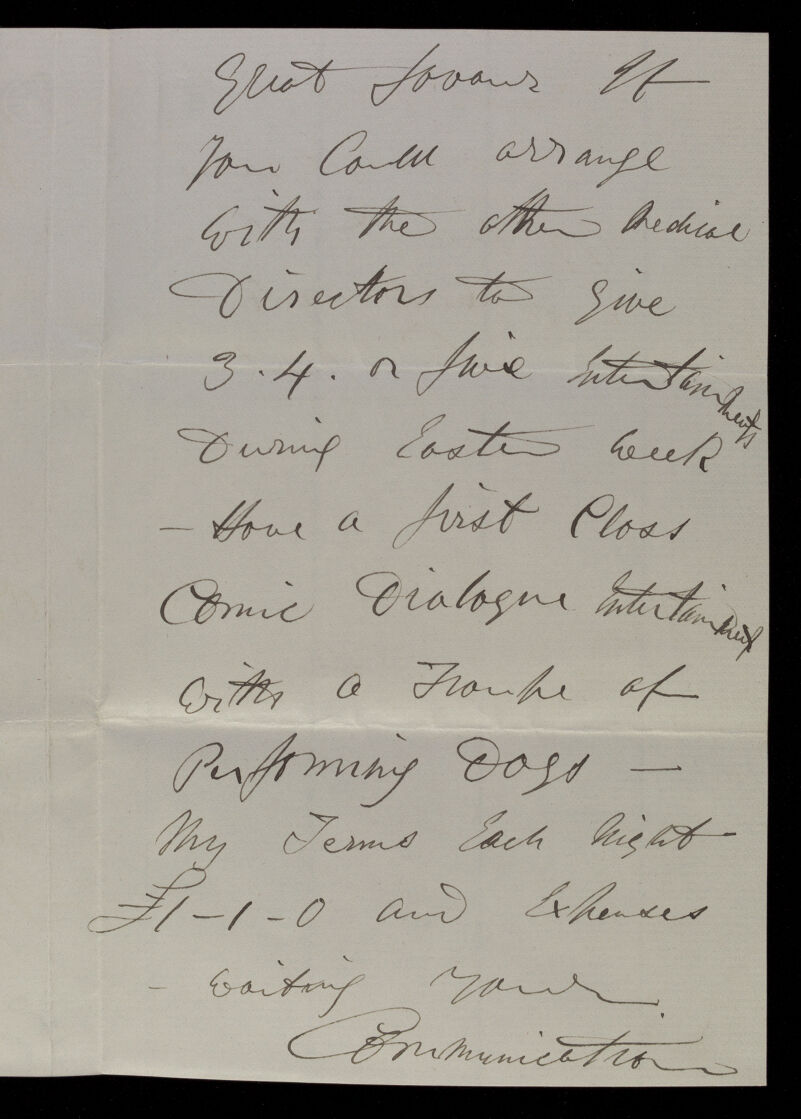 Great favour If
You Could arrange
with the other Medical
Directors to give
3.4. or five Entertainments
During Easter Week
— Have a first Class
Comic Dialogue Entertainment
with a Troupe of
Performing Dogs —
My Terms Each Night
£1-1-0 and Expenses
- waiting your
Communication